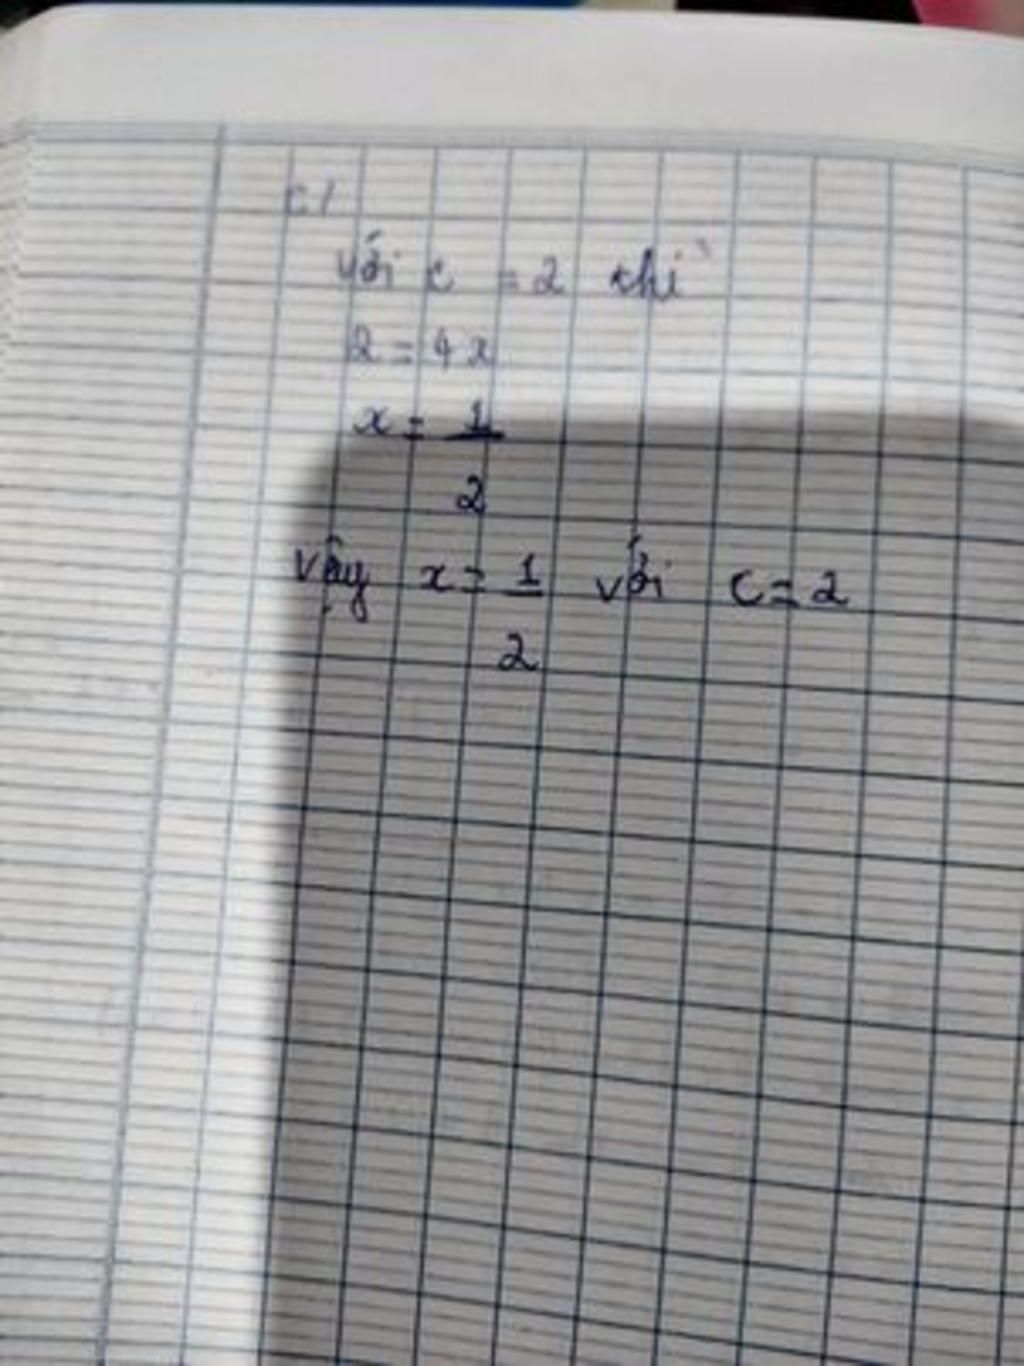 c/
với c = 2 thì
2 = 4x
x = 1/2
vậy x = 1/2 với c = 2